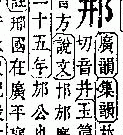 邢
廣韻集韻
切音井玉篇
方說文
十五年公
邢國在廣平